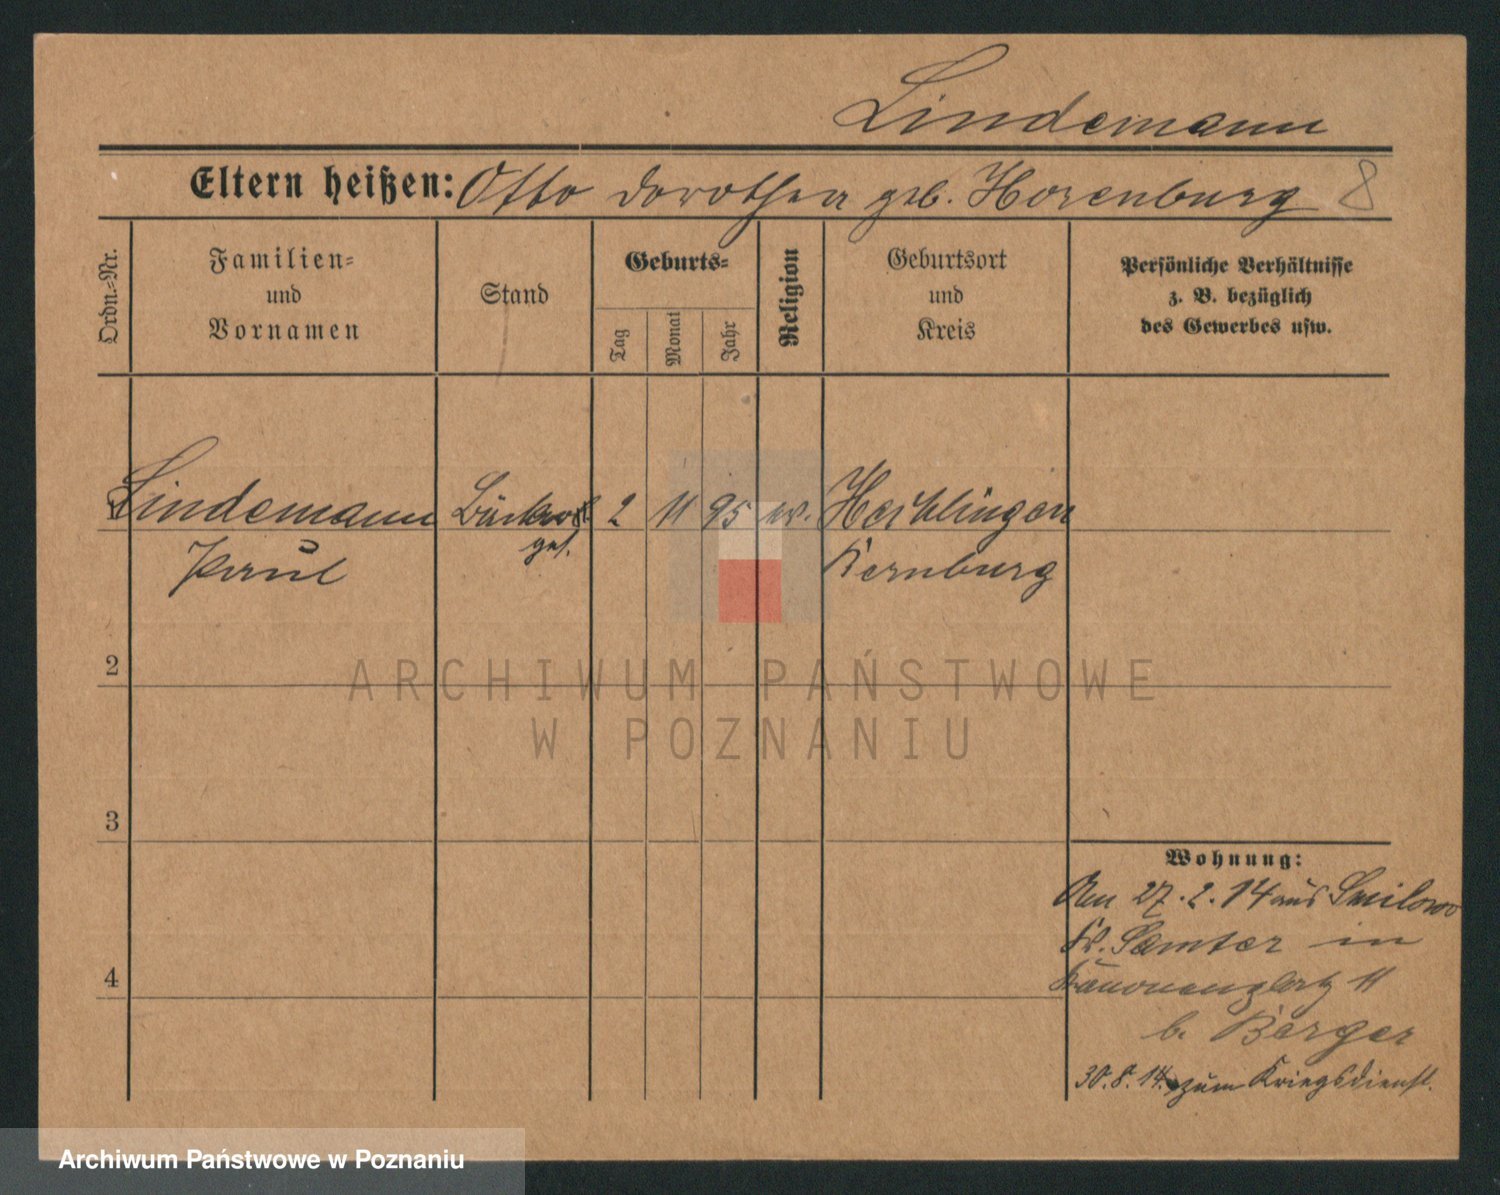 Lindemann
Eltern heißen: Otto Dorothea geb. Horenburg 8
Ordn.-Nr.
Familien-
und
Vornamen
Stand
Geburts-
Tag
Monat
Jahr
Religion
Geburtsort
und
Kreis
Persönliche Verhältnisse
z. B. bezüglich
des Gewerbes usw.
1 Lindemann 2 11 95 ev.
Paul ges. Bernburg
2
ARCHIWUM PAŃSTWOWE
W POZNANIU
3
Wohnung:
Am 27.2.14 aus Smilowo
Kr. Samter in
Kanonenplatz 11
4
b. Berger
30.8.14. zum Kriegsdienst.
Archiwum Państwowe w Poznaniu